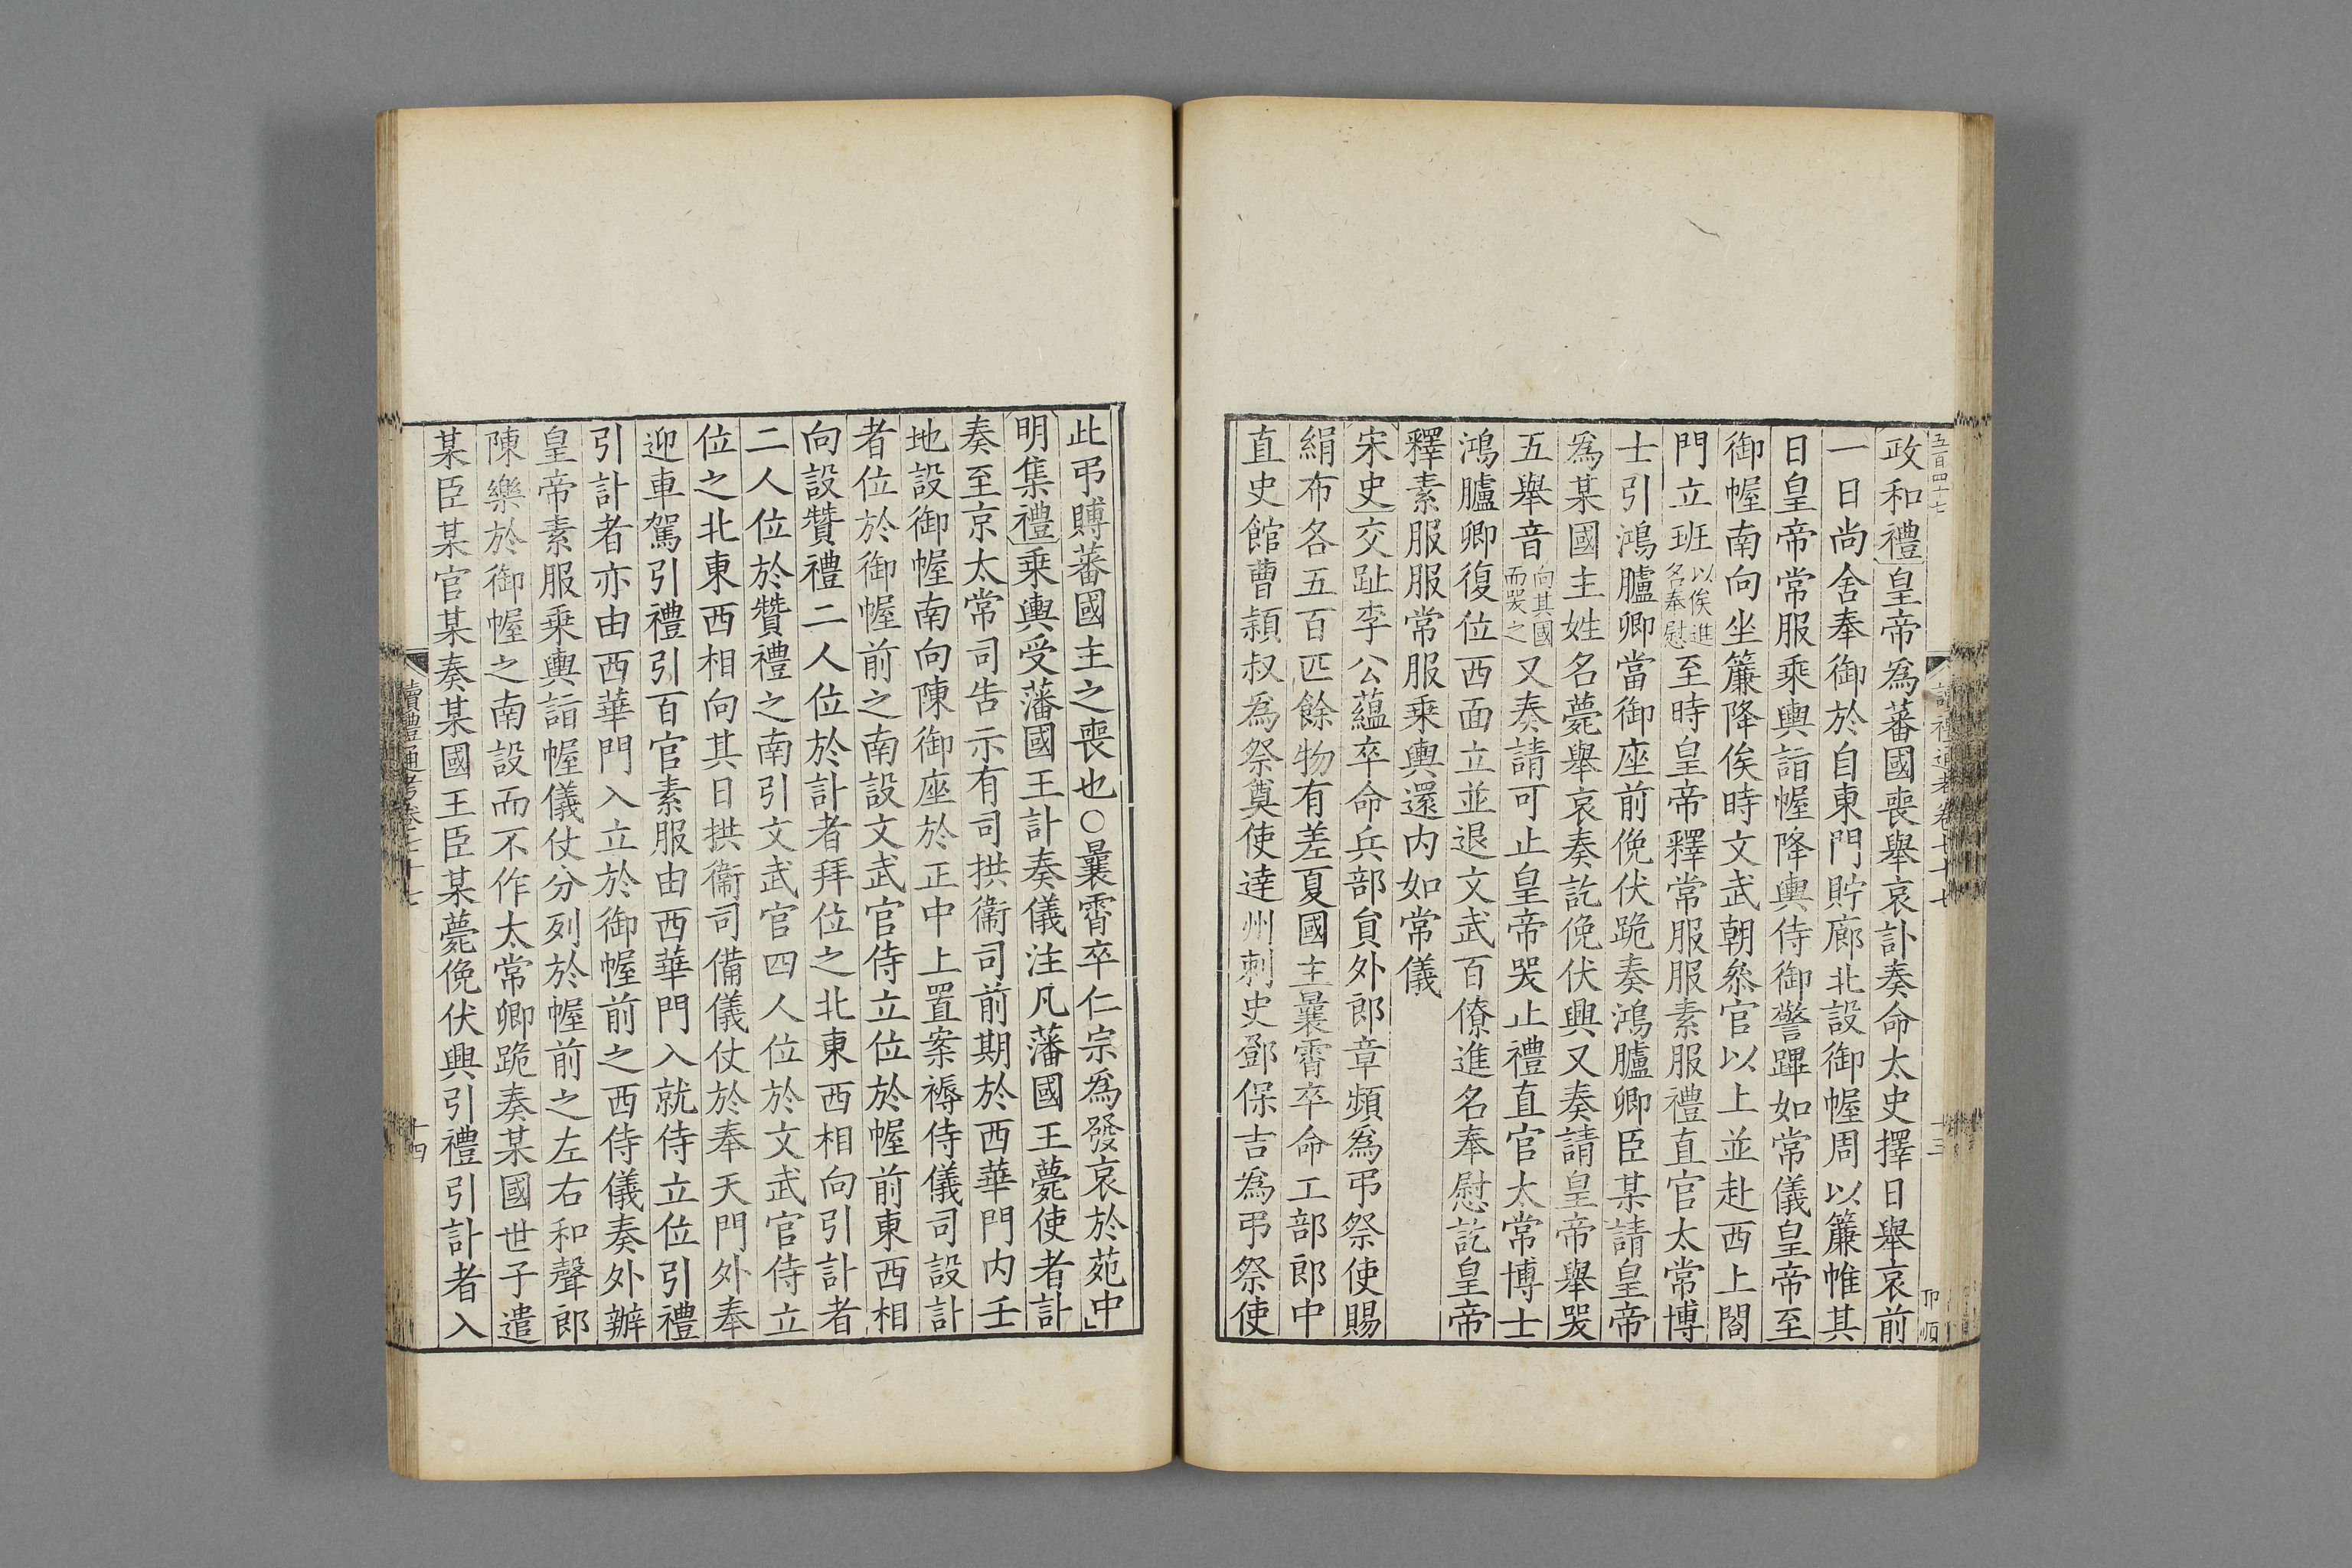 五百四十七
讀禮通考卷七十七
十三
政和禮皇帝爲蕃國喪舉哀訃奏命太史擇日舉哀前
一日尚舍奉御於自東門貯廊北設御幄周以簾帷其
日皇帝常服乘輿詣幄降輿侍御警蹕如常儀皇帝至
御幄南向坐簾降俟時文武朝叅官以上並赴西上閤
門立班以俟進名奉慰至時皇帝釋常服服素服禮直官太常博
士引鴻臚卿當御座前俛伏跪奏鴻臚卿臣某請皇帝
爲某國主姓名薨舉哀奏訖俛伏興又奏請皇帝舉哭
五舉音向其國而哭之又奏請可止皇帝哭止禮直官太常博士
鴻臚卿復位西面立並退文武百僚進名奉慰訖皇帝
釋素服服常服乘輿還内如常儀
宋史交趾李公蘊卒命兵部貟外郎章頻爲弔祭使賜
絹布各五百匹餘物有差夏國主曩霄卒命工部郎中
直史館曹穎叔爲祭奠使達州刺史鄧保吉爲弔祭使
此弔賻蕃國主之喪也○曩霄卒仁宗爲發哀於苑中
明集禮乗輿受藩國王訃奏儀注凡藩國王薨使者訃
奏至京太常司告示有司拱衞司前期於西華門内壬
地設御幄南向陳御座於正中上置案褥侍儀司設訃
者位於御幄前之南設文武官侍立位於幄前東西相
向設贊禮二人位於訃者拜位之北東西相向引訃者
二人位於贊禮之南引文武官四人位於文武官侍立
位之北東西相向其日拱衞司備儀仗於奉天門外奉
迎車駕引禮引百官素服由西華門入就侍立位引禮
引訃者亦由西華門入立於御幄前之西侍儀奏外辦
皇帝素服乗輿詣幄儀仗分列於幄前之左右和聲郎
陳樂於御幄之南設而不作太常卿跪奏某國世子遣
某臣某官某奏某國王臣某薨俛伏興引禮引訃者入
讀禮通考卷七十七
十四